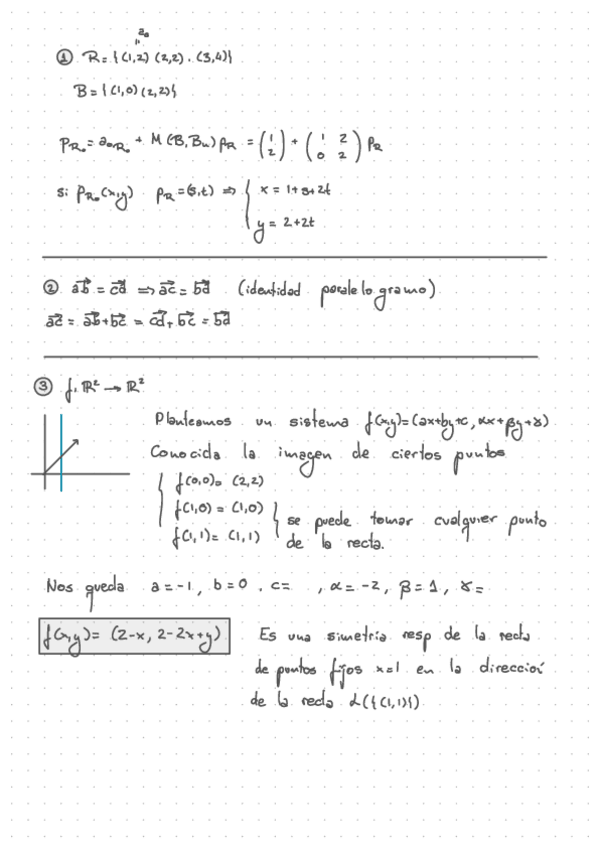 a₀
"
① R = {(1,2) (2,2), (3,4)}
B = {(1,0) (2,2)}
P_R₀ = a₀_R₀ + M(B, Bu) P_R = (1 2) + (1 2 0 2) P_R
si P_R₀(x,y) P_R = (s,t) ⇒ { x = 1+s+2t
y = 2+2t
② ab = cd ⇒ ac = bd (identidad paralelogramo)
ac = ab + bc = cd + bc = bd
③ f: ℝ² → ℝ²
Planteamos un sistema f(x,y) = (ax+by+c, αx+βy+γ)
Conocida la imagen de ciertos puntos
f(0,0) = (2,2)
f(1,0) = (1,0)
f(1,1) = (1,1)
se puede tomar cualquier punto
de la recta.
Nos queda a = -1, b = 0, c = , α = -2, β = 1, γ =
f(x,y) = (2-x, 2-2x+y)
Es una simetría resp de la recta
de puntos fijos x=1 en la direcció
de la recta L({(1,1)})